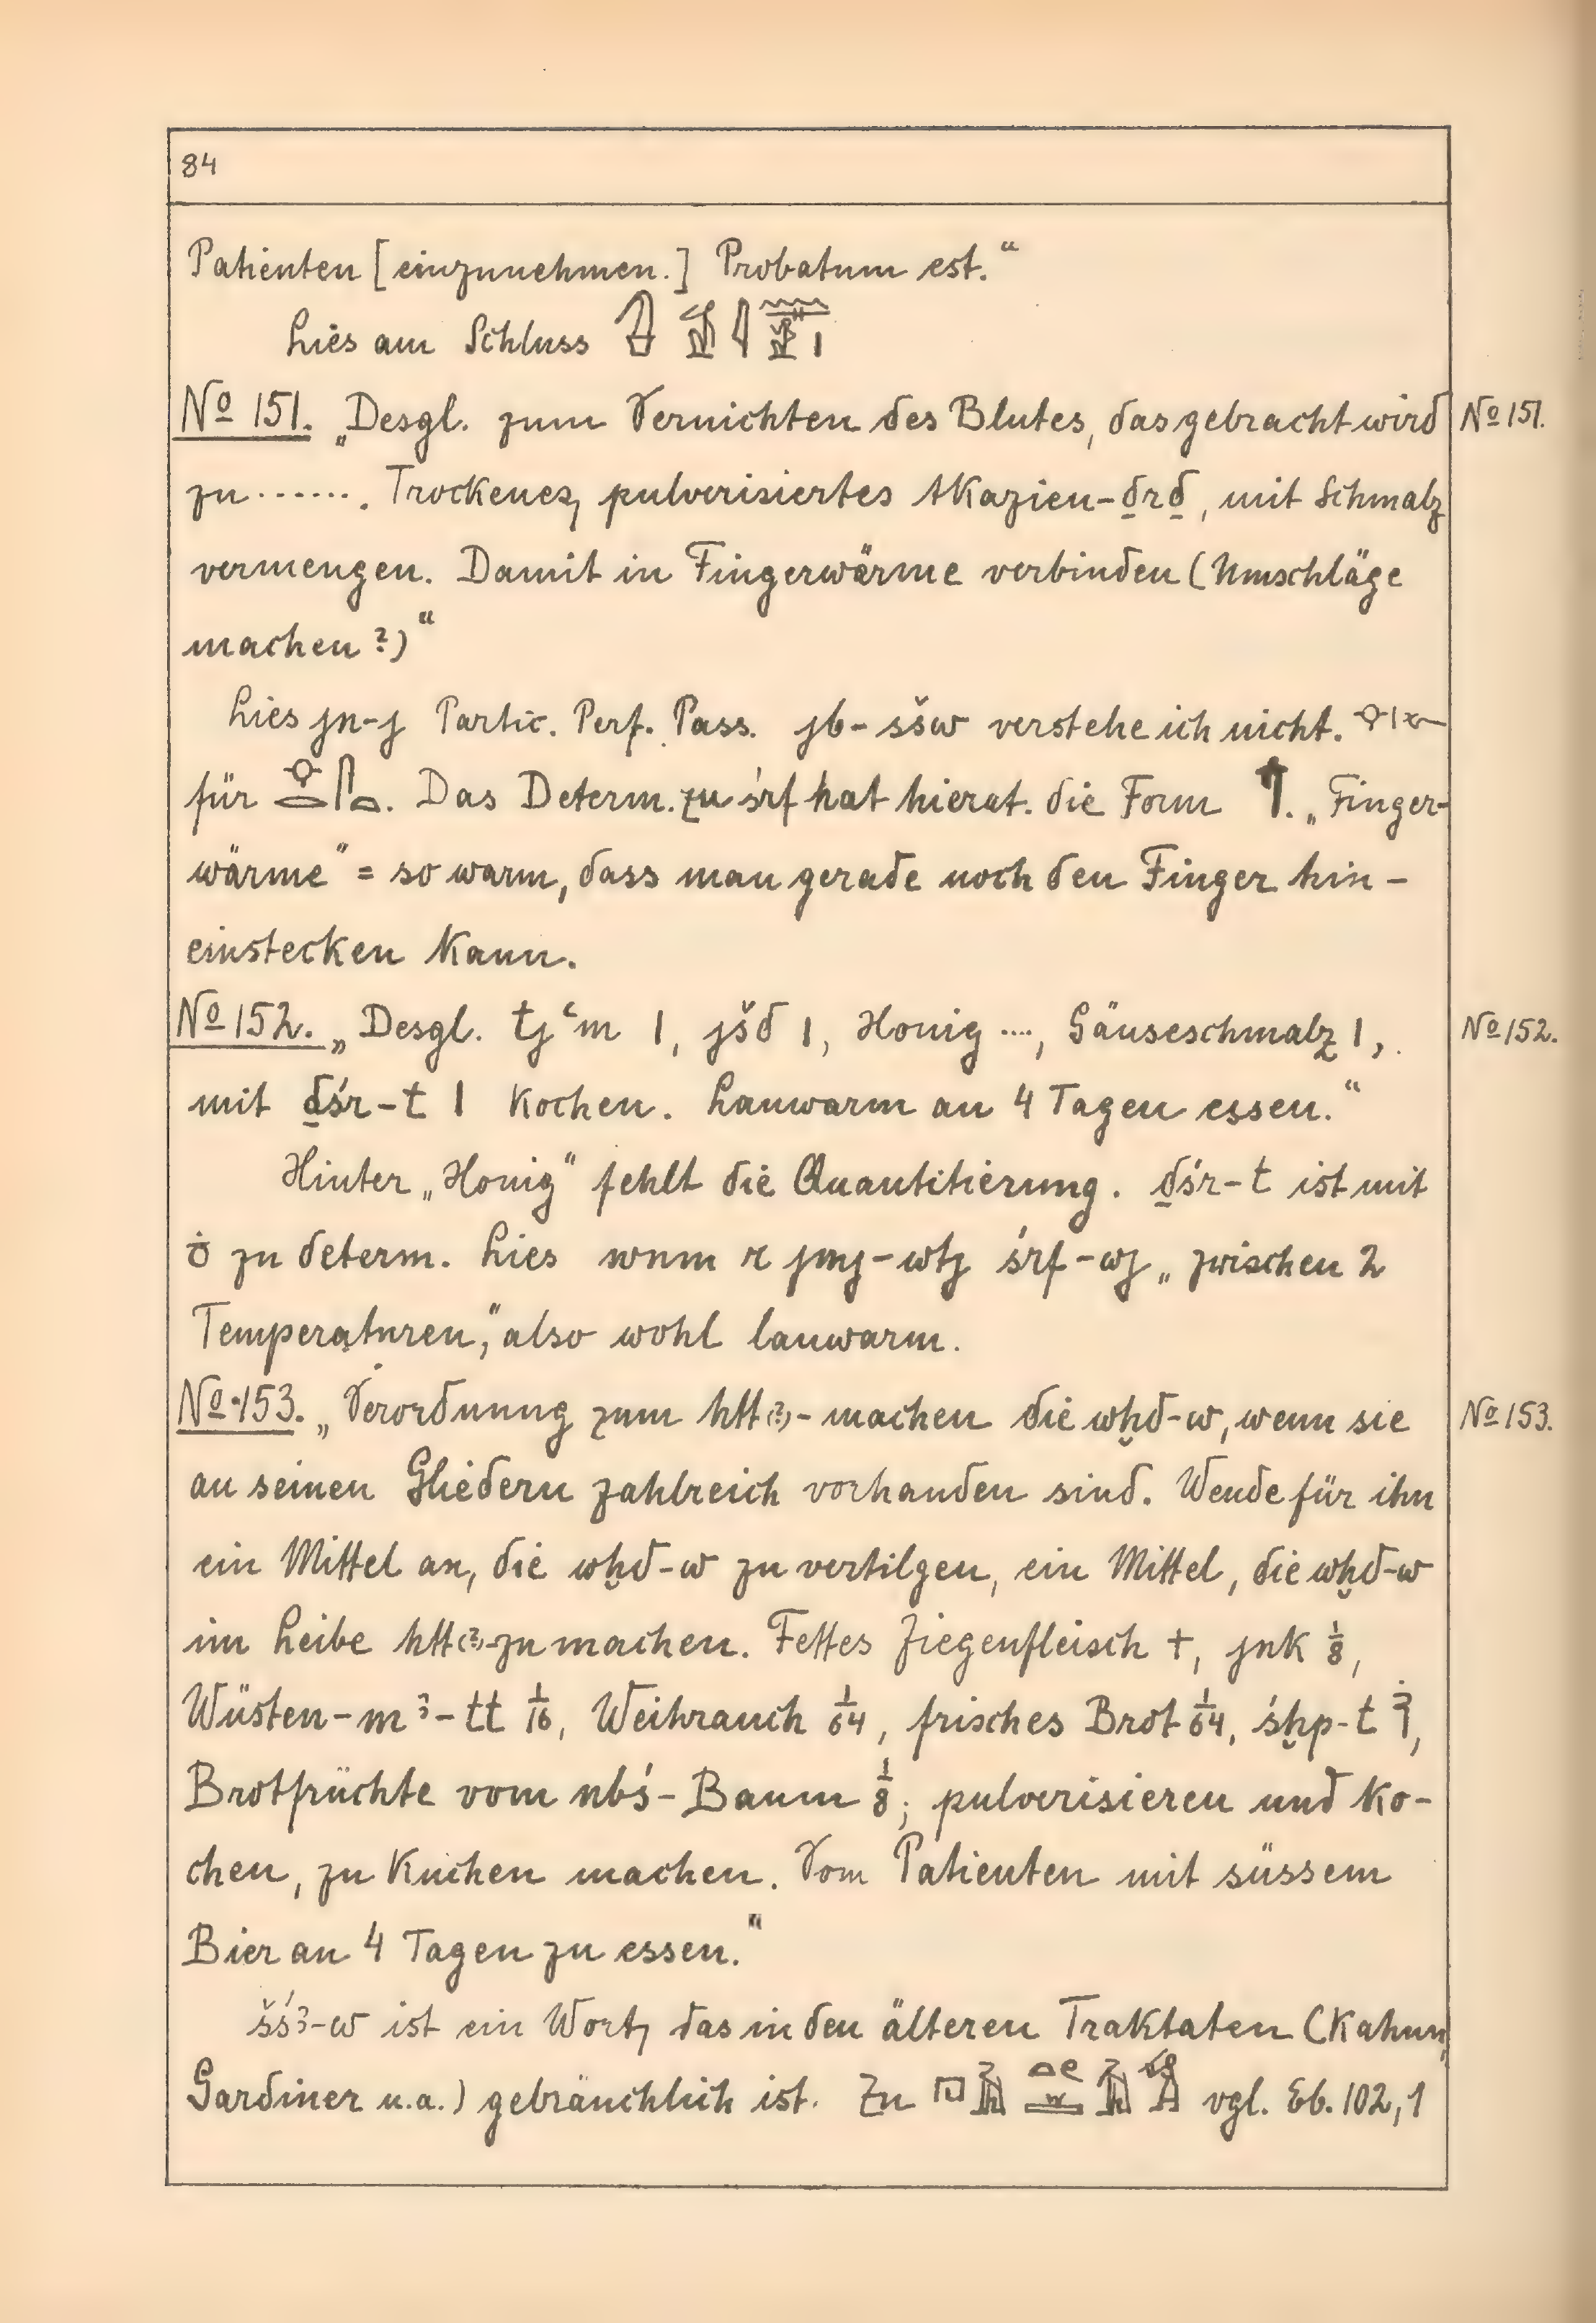 84
Patienten [einzunehmen.] Probatum est.“
Lies am Schluss
No 151. „Desgl. zum Vernichten des Blutes, das gebracht wird No 151.
zu ....... Trockenes, pulverisiertes Akazien-ḏrḏ, mit Schmalz
vermengen. Damit in Fingerwärme verbinden (Umschläge
machen?)“
Lies jn-j Partic. Perf. Pass. jb-sšw verstehe ich nicht.
für . Das Determ. zu śrf hat hierat. die Form . „Finger-
wärme“ = so warm, dass man gerade noch den Finger hin-
einstecken kann.
No 152. „Desgl. tjʿm 1, jšd 1, Honig ...., Gänseschmalz 1, No 152.
mit ḏśr-t 1 kochen. Lauwarm an 4 Tagen essen.“
Hinter „Honig“ fehlt die Quantitierung. ḏśr-t ist mit
zu determ. Lies wnm r jmj-wtj śrf-wj „zwischen 2
Temperaturen“, also wohl lauwarm.
No 153. „Verordnung zum htt(?)-machen die wḫd-w, wenn sie No 153.
an seinen Gliedern zahlreich vorhanden sind. Wende für ihn
ein Mittel an, die wḫd-w zu vertilgen, ein Mittel, die wḫd-w
im Leibe htt(?)-zu machen. Fettes Ziegenfleisch +, jnk 1/8,
Wüsten-mꜣ-tt 1/16, Weihrauch 1/64, frisches Brot 1/64, śḫp-t
Brotfrüchte vom nbś-Baum 1/8; pulverisieren und ko-
chen, zu Kuchen machen. Vom Patienten mit süssem
Bier an 4 Tagen zu essen.“
šśꜣ-w ist ein Wort, das in den älteren Traktaten (Kahun,
Gardiner u.a.) gebräuchlich ist. Zu vgl. Eb. 102,1